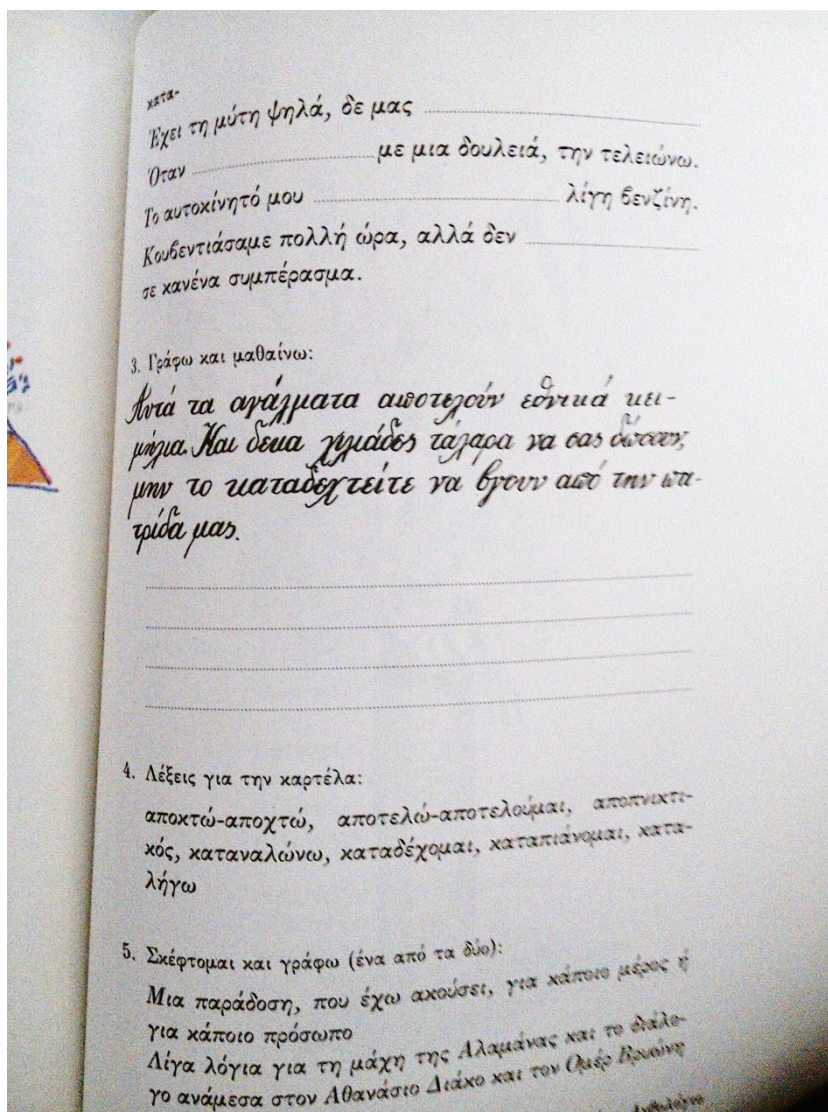 κατα-
Έχει τη μύτη ψηλά, δε μας
Όταν με μια δουλειά, την τελειώνω.
Το αυτοκίνητό μου λίγη βενζίνη.
Κουβεντιάσαμε πολλή ώρα, αλλά δεν
σε κανένα συμπέρασμα.
3. Γράφω και μαθαίνω:
Αυτά τα αγάλματα αποτελούν εθνικά κει-
μήλια. Και δέκα χιλιάδες τάλαρα να σας δώσουν,
μην το καταδεχτείτε να βγουν από την πα-
τρίδα μας.
4. Λέξεις για την καρτέλα:
αποκτώ-αποχτώ, αποτελώ-αποτελούμαι, αποπνικτι-
κός, καταναλώνω, καταδέχομαι, καταπιάνομαι, κατα-
λήγω
5. Σκέφτομαι και γράφω (ένα από τα δύο):
Μια παράδοση, που έχω ακούσει, για κάποιο μέρος ή
για κάποιο πρόσωπο
Λίγα λόγια για τη μάχη της Αλαμάνας και το διάλο-
γο ανάμεσα στον Αθανάσιο Διάκο και τον Ομέρ Βρυώνη